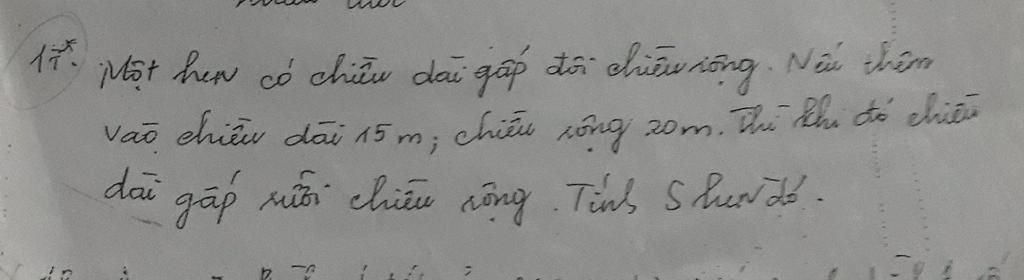 17*. Một hcn có chiều dài gấp đôi chiều rộng. Nếu thêm
vào chiều dài 15 m; chiều rộng 20m. Thì khi đó chiều
dài gấp rưỡi chiều rộng. Tính S hcn đó.